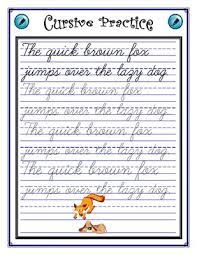 Cursive Practice
The quick brown fox
jumps over the lazy dog
The quick brown fox
jumps over the lazy dog.
The quick brown fox
jumps over the lazy dog.
The quick brown fox
jumps over the lazy dog.